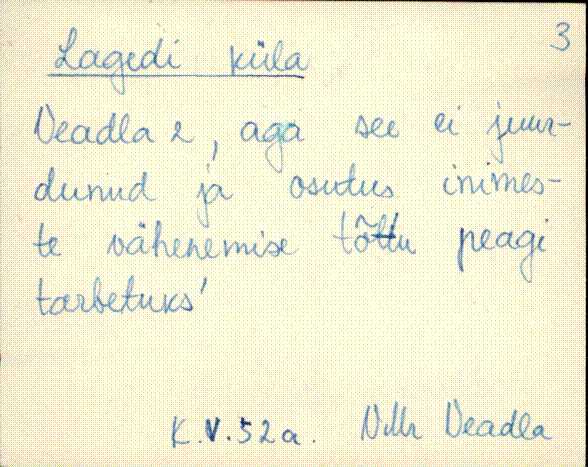 3
Lagedi küla
Neadla 2, aga see ei juur-
dunud ja osutus inimes-
te vähenemise tõttu peagi
tarbetuks'
K.V. 52a. Neadla